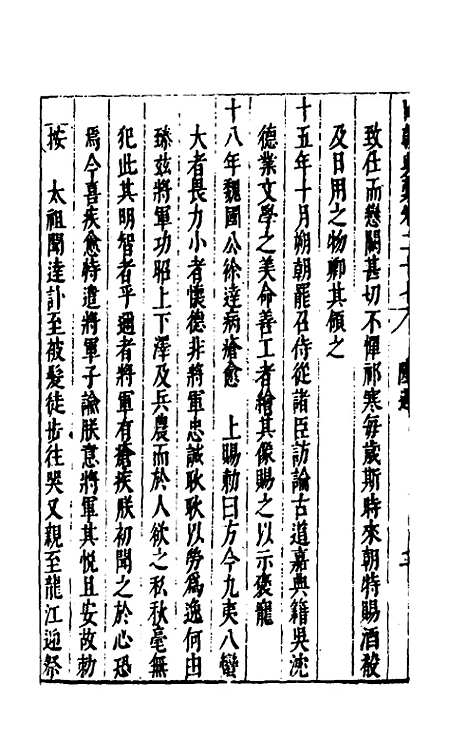 致仕而戀闕甚切不憚祁寒每歲斯時來朝特賜酒殽
及日用之物聊其領之
十五年十月朔朝罷召侍從諸臣訪論古道嘉典籍吳沈
德業文學之美命善工者繪其像賜之以示褒寵
十八年魏國公徐達病瘡愈　上賜勅曰方今九夷八蠻
大者畏力小者懷德非將軍忠誠耿耿以勞爲逸何由
臻玆將軍功昭上下澤及兵農而於人欲之私秋毫無
犯此其明智者乎邇者將軍有瘡疾朕初聞之於心恐
焉今喜疾愈特遣將軍子諭朕意將軍其悅且安故勅
按　太祖聞達訃至被髮徒步往哭又親至龍江迎祭